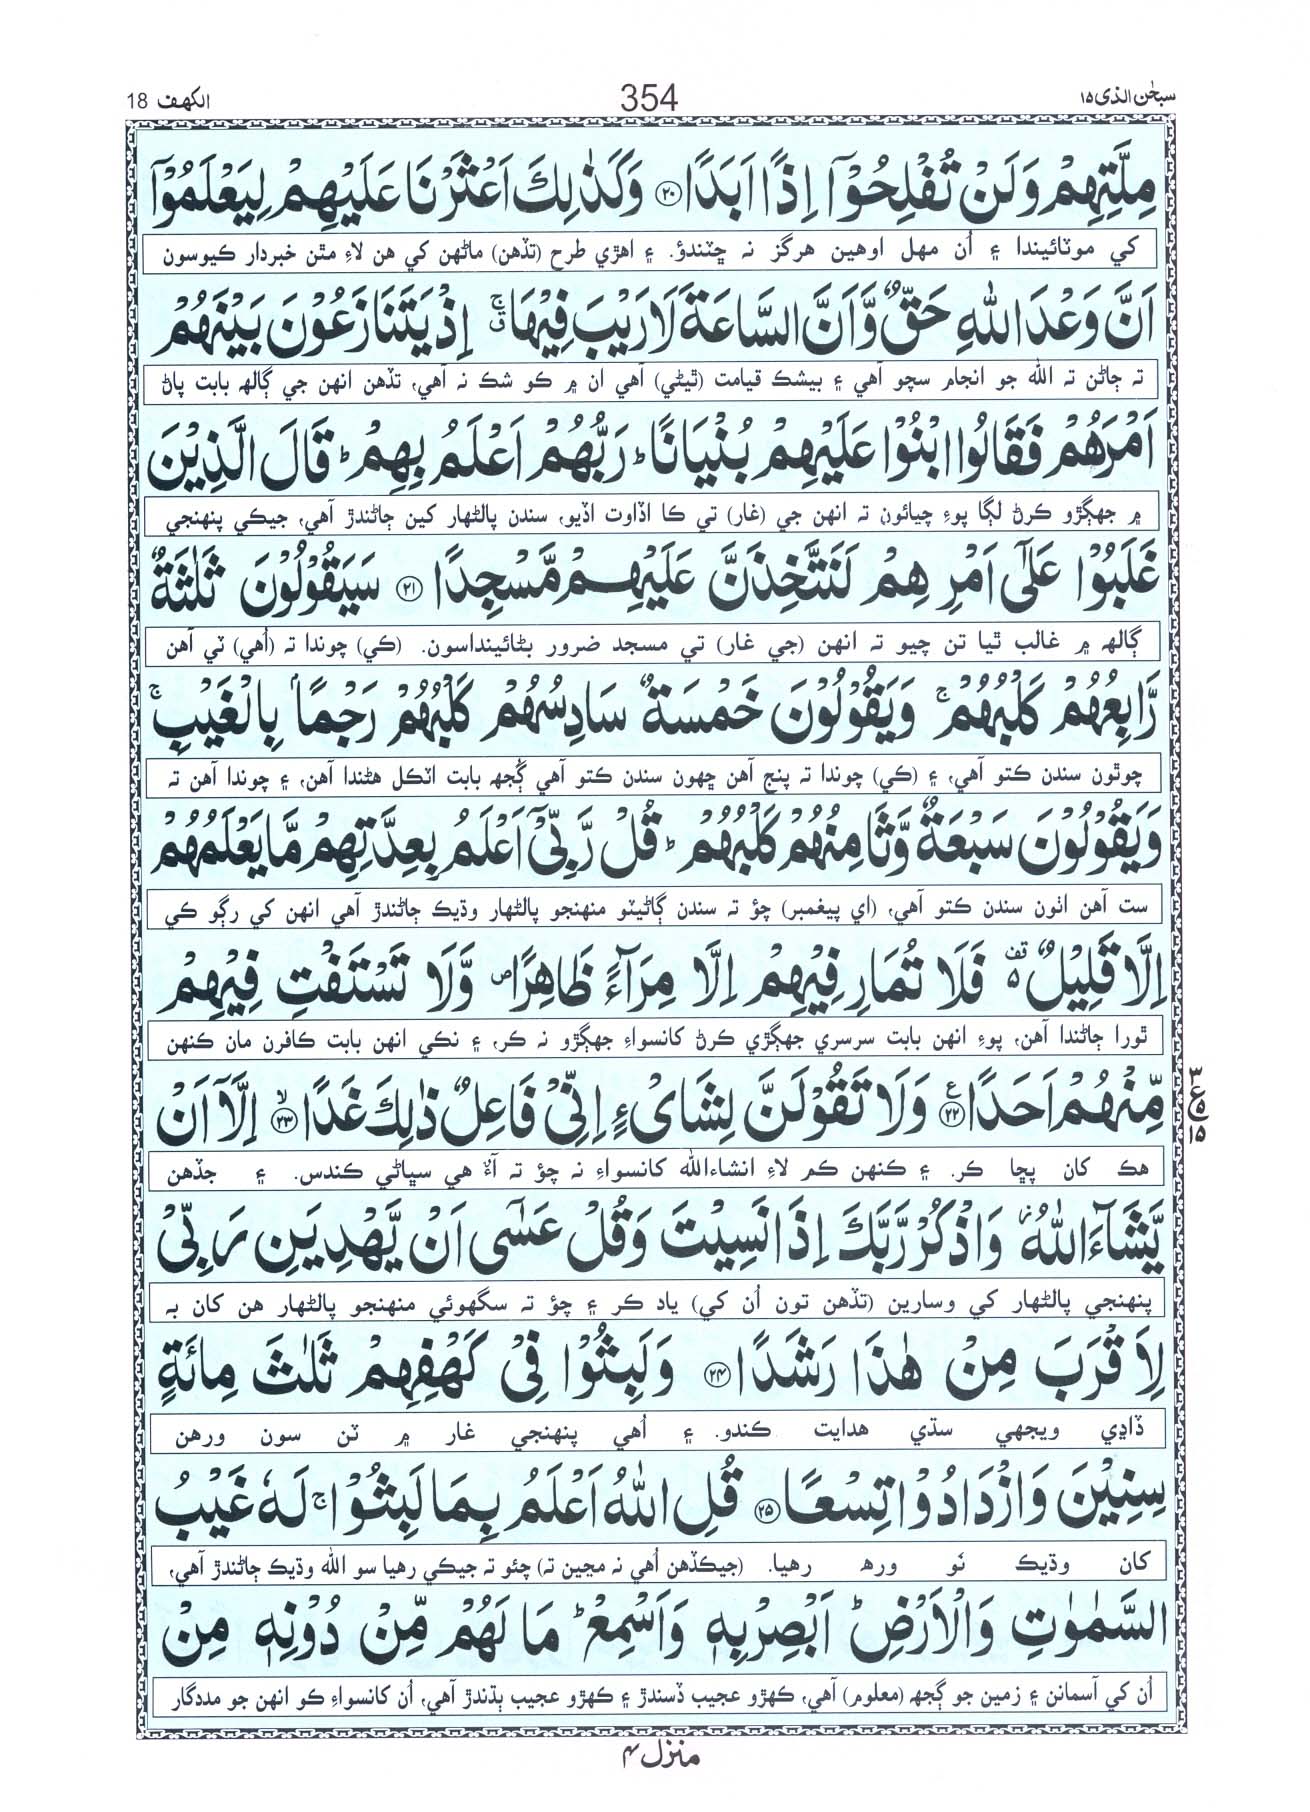 سبحٰن الذی ١٥
354
الكهف 18
مِلَّتِهِمْ وَلَنْ تُفْلِحُوْۤا اِذًا اَبَدًا ﴿۲۰﴾ وَكَذٰلِكَ اَعْثَرْنَا عَلَيْهِمْ لِيَعْلَمُوْۤا
کي موٽائيندا ۽ اُن مهل اوهين هرگز نہ ڇٽندؤ. ۽ اهڙي طرح (تڏهن) ماڻهن کي هن لاءِ مٿن خبردار ڪيوسون
اَنَّ وَعْدَ اللّٰهِ حَقٌّ وَّاَنَّ السَّاعَةَ لَا رَيْبَ فِيْهَا ۚ اِذْ يَتَنَازَعُوْنَ بَيْنَهُمْ
تہ ڄاڻن تہ الله جو انجام سچو آهي ۽ بيشڪ قيامت (ٿيڻي) آهي ان ۾ ڪو شڪ نہ آهي، تڏهن انهن جي ڳالهہ بابت پاڻ
اَمْرَهُمْ فَقَالُوا ابْنُوْا عَلَيْهِمْ بُنْيَانًا ؕ رَبُّهُمْ اَعْلَمُ بِهِمْ ؕ قَالَ الَّذِيْنَ
۾ جهڳڙو ڪرڻ لڳا پوءِ چيائون تہ انهن جي (غار) تي ڪا اڏاوت اڏيو، سندن پالڻهار کين ڄاڻندڙ آهي، جيڪي پنهنجي
غَلَبُوْا عَلٰۤى اَمْرِهِمْ لَنَتَّخِذَنَّ عَلَيْهِمْ مَّسْجِدًا ﴿۲۱﴾ سَيَقُوْلُوْنَ ثَلٰثَةٌ
ڳالهہ ۾ غالب ٿيا تن چيو تہ انهن (جي غار) تي مسجد ضرور بڻائينداسون. (ڪي) چوندا تہ (اُهي) ٽي آهن
رَّابِعُهُمْ كَلْبُهُمْ ۚ وَيَقُوْلُوْنَ خَمْسَةٌ سَادِسُهُمْ كَلْبُهُمْ رَجْمًۢا بِالْغَيْبِ ۚ
چوٿون سندن ڪتو آهي، ۽ (ڪي) چوندا تہ پنج آهن ڇهون سندن ڪتو آهي ڳُجهہ بابت اٽڪل هڻندا آهن، ۽ چوندا آهن تہ
وَيَقُوْلُوْنَ سَبْعَةٌ وَّثَامِنُهُمْ كَلْبُهُمْ ؕ قُلْ رَّبِّيْۤ اَعْلَمُ بِعِدَّتِهِمْ مَّا يَعْلَمُهُمْ
ست آهن اٺون سندن ڪتو آهي، (اي پيغمبر) چؤ تہ سندن ڳاڻيٽو منهنجو پالڻهار وڌيڪ ڄاڻندڙ آهي انهن کي رڳو ڪي
اِلَّا قَلِيْلٌ ۬ قف فَلَا تُمَارِ فِيْهِمْ اِلَّا مِرَآءً ظَاهِرًا ۪ وَّلَا تَسْتَفْتِ فِيْهِمْ
ٿورا ڄاڻندا آهن، پوءِ انهن بابت سرسري جهڳڙي ڪرڻ کانسواءِ جهڳڙو نہ ڪر، ۽ نڪي انهن بابت ڪافرن مان ڪنهن
مِّنْهُمْ اَحَدًا ﴿۲۲﴾ ع وَلَا تَقُوْلَنَّ لِشَایْءٍ اِنِّيْ فَاعِلٌ ذٰلِكَ غَدًا ﴿۲۳﴾ۙ اِلَّاۤ اَنْ
٣ ع ٥ ١٥
هڪ کان پڇا ڪر. ۽ ڪنهن ڪم لاءِ انشاءالله کانسواءِ نہ چؤ تہ آءٌ هي سڀاڻي ڪندس. ۽ جڏهن
يَّشَآءَ اللّٰهُ ؗ وَاذْكُرْ رَّبَّكَ اِذَا نَسِيْتَ وَقُلْ عَسٰۤى اَنْ يَّهْدِيَنِ رَبِّيْ
پنهنجي پالڻهار کي وسارين (تڏهن تون اُن کي) ياد ڪر ۽ چؤ تہ سگهوئي منهنجو پالڻهار هن کان بہ
لِاَقْرَبَ مِنْ هٰذَا رَشَدًا ﴿۲۴﴾ وَلَبِثُوْا فِيْ كَهْفِهِمْ ثَلٰثَ مِائَةٍ
ڏاڍي ويجهي سڌي هدايت ڪندو. ۽ اُهي پنهنجي غار ۾ ٽن سون ورهن
سِنِيْنَ وَازْدَادُوْا تِسْعًا ﴿۲۵﴾ قُلِ اللّٰهُ اَعْلَمُ بِمَا لَبِثُوْا ۚ لَهٗ غَيْبُ
کان وڌيڪ نَو ورهہ رهيا. (جيڪڏهن اُهي نہ مڃين تہ) چئو تہ جيڪي رهيا سو الله وڌيڪ ڄاڻندڙ آهي،
السَّمٰوٰتِ وَالْاَرْضِ ؕ اَبْصِرْ بِهٖ وَاَسْمِعْ ؕ مَا لَهُمْ مِّنْ دُوْنِهٖ مِنْ
اُن کي آسمانن ۽ زمين جو ڳجهہ (معلوم) آهي، ڪهڙو عجيب ڏسندڙ ۽ ڪهڙو عجيب ٻڌندڙ آهي، اُن کانسواءِ ڪو انهن جو مددگار
منزل ٤